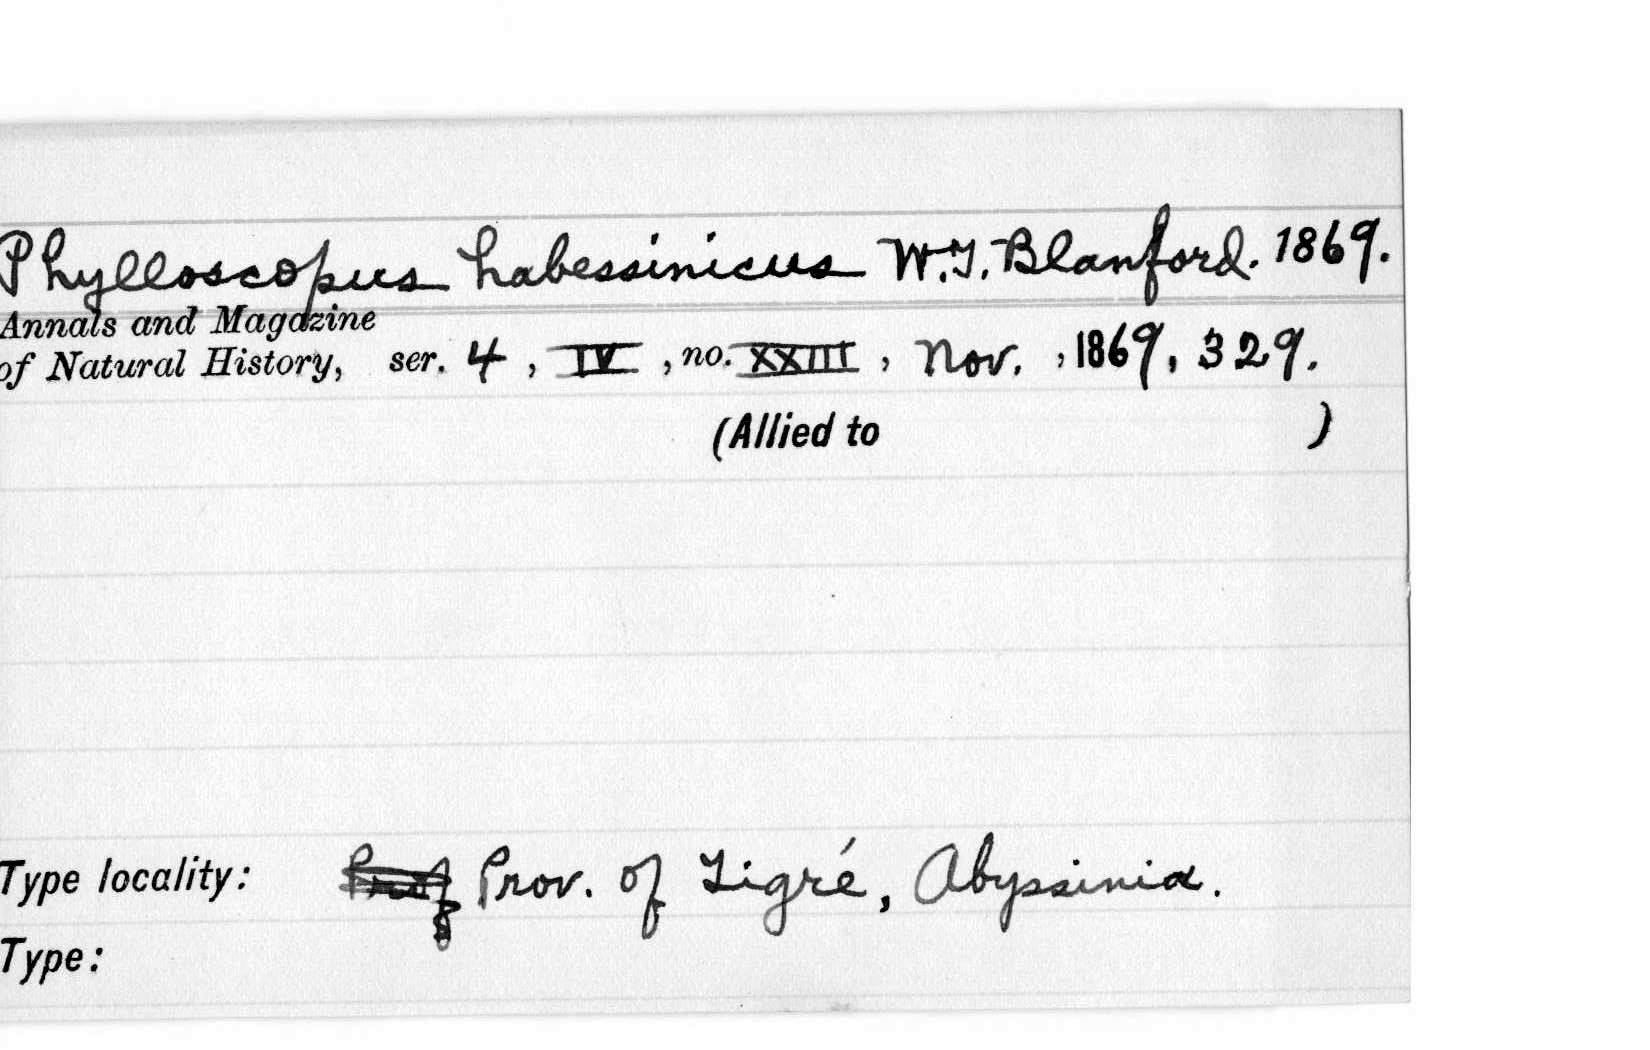 Phylloscopus habessinicus W.T. Blanford. 1869.
Annals and Magazine
of Natural History, ser. 4, IV, no. XXIII, Nov., 1869, 329.
(Allied to )
Type locality: Prov. of Tigré, Abyssinia.
Type: